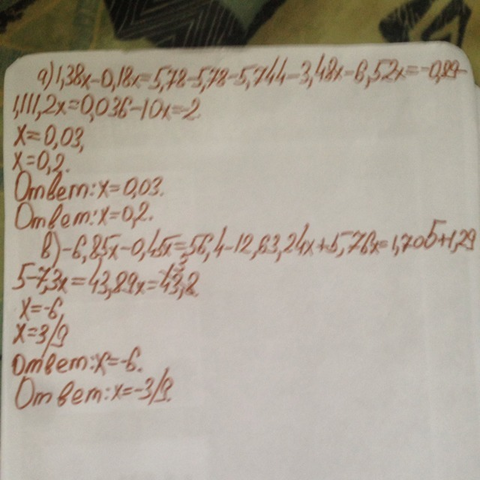 а) 1,38x-0,18x=5,78-5,78-5,744-3,48x-6,52x=-0,89-
1,111,2x=0,036-10x=-2
x=0,03,
x=0,2.
Ответ: x=0,03.
Ответ: x=0,2.
в) -6,85x-0,45x=56,4-12,63,24x+5,76x=1,705+1,29
5-7,3x=43,89x=43,8
x=-6
x=3/9
ответ: x=-6.
Ответ: x=-3/9.